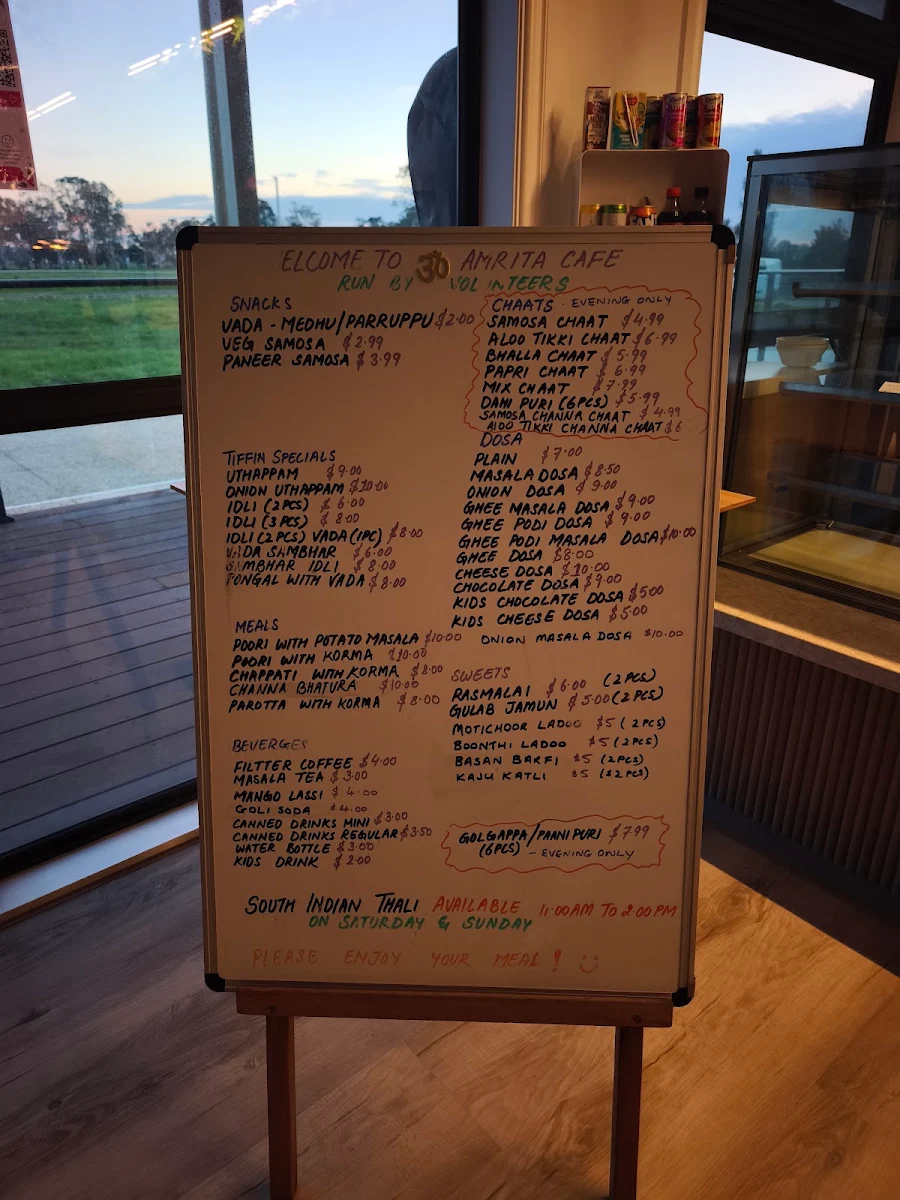 ELCOME TO ॐ AMRITA CAFE
RUN BY VOL NTEERS
SNACKS
VADA - MEDHU/PARRUPPU $2.00
VEG SAMOSA $2.99
PANEER SAMOSA $3.99
CHAATS - EVENING ONLY
SAMOSA CHAAT $4.99
ALOO TIKKI CHAAT $6.99
BHALLA CHAAT $5.99
PAPRI CHAAT $6.99
MIX CHAAT $7.99
DAHI PURI (6PCS) $5.99
SAMOSA CHANNA CHAAT $4.99
ALOO TIKKI CHANNA CHAAT $6
TIFFIN SPECIALS
UTHAPPAM $9.00
ONION UTHAPPAM $10.00
IDLI (2PCS) $6.00
IDLI (3PCS) $8.00
IDLI (2PCS) VADA (1PC) $8.00
VADA SAMBHAR $6.00
SAMBHAR IDLI $8.00
PONGAL WITH VADA $8.00
DOSA
PLAIN $7.00
MASALA DOSA $8.50
ONION DOSA $9.00
GHEE MASALA DOSA $9.00
GHEE PODI DOSA $9.00
GHEE PODI MASALA DOSA $10.00
GHEE DOSA $8.00
CHEESE DOSA $10.00
CHOCOLATE DOSA $9.00
KIDS CHOCOLATE DOSA $5.00
KIDS CHEESE DOSA $5.00
ONION MASALA DOSA $10.00
MEALS
POORI WITH POTATO MASALA $10.00
POORI WITH KORMA $10.00
CHAPPATI WITH KORMA $8.00
CHANNA BHATURA $10.00
PAROTTA WITH KORMA $8.00
SWEETS
RASMALAI $6.00 (2PCS)
GULAB JAMUN $5.00 (2PCS)
MOTICHOOR LADOO $5 (2PCS)
BOONTHI LADOO $5 (2PCS)
BASAN BARFI $5 (2PCS)
KAJU KATLI $5 (2PCS)
BEVERGES
FILTTER COFFEE $4.00
MASALA TEA $3.00
MANGO LASSI $4.00
GOLI SODA $4.00
CANNED DRINKS MINI $3.00
CANNED DRINKS REGULAR $3.50
WATER BOTTLE $3.00
KIDS DRINK $2.00
GOLGAPPA/PAANI PURI $7.99
(6PCS) - EVENING ONLY
SOUTH INDIAN THALI AVAILABLE 11:00AM TO 2:00PM
ON SATURDAY & SUNDAY
PLEASE ENJOY YOUR MEAL!